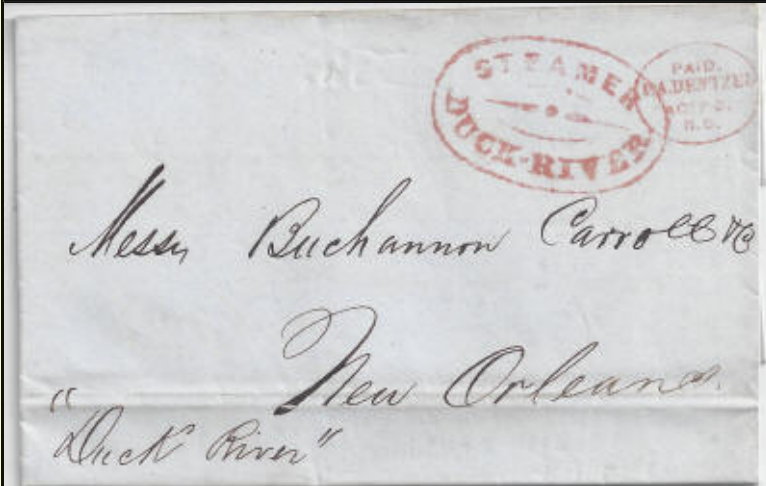 STEAMER
DUCK-RIVER
PAID.
Messrs Buchannon Carroll & Co
New Orleans.
"Duck River"